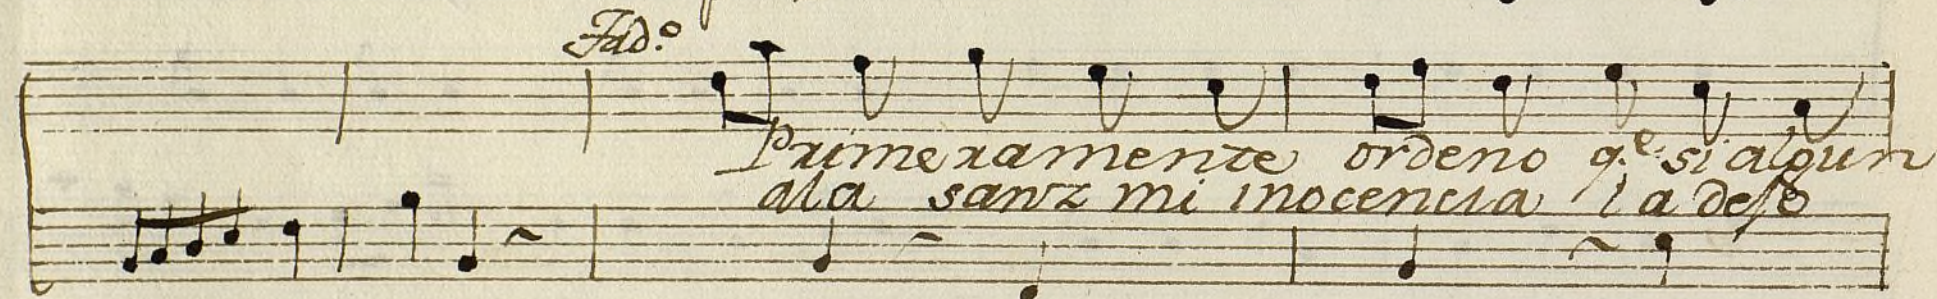 Fad.º
Primeramente ordeno q.e si algun
ala sanz mi inocencia la dejo